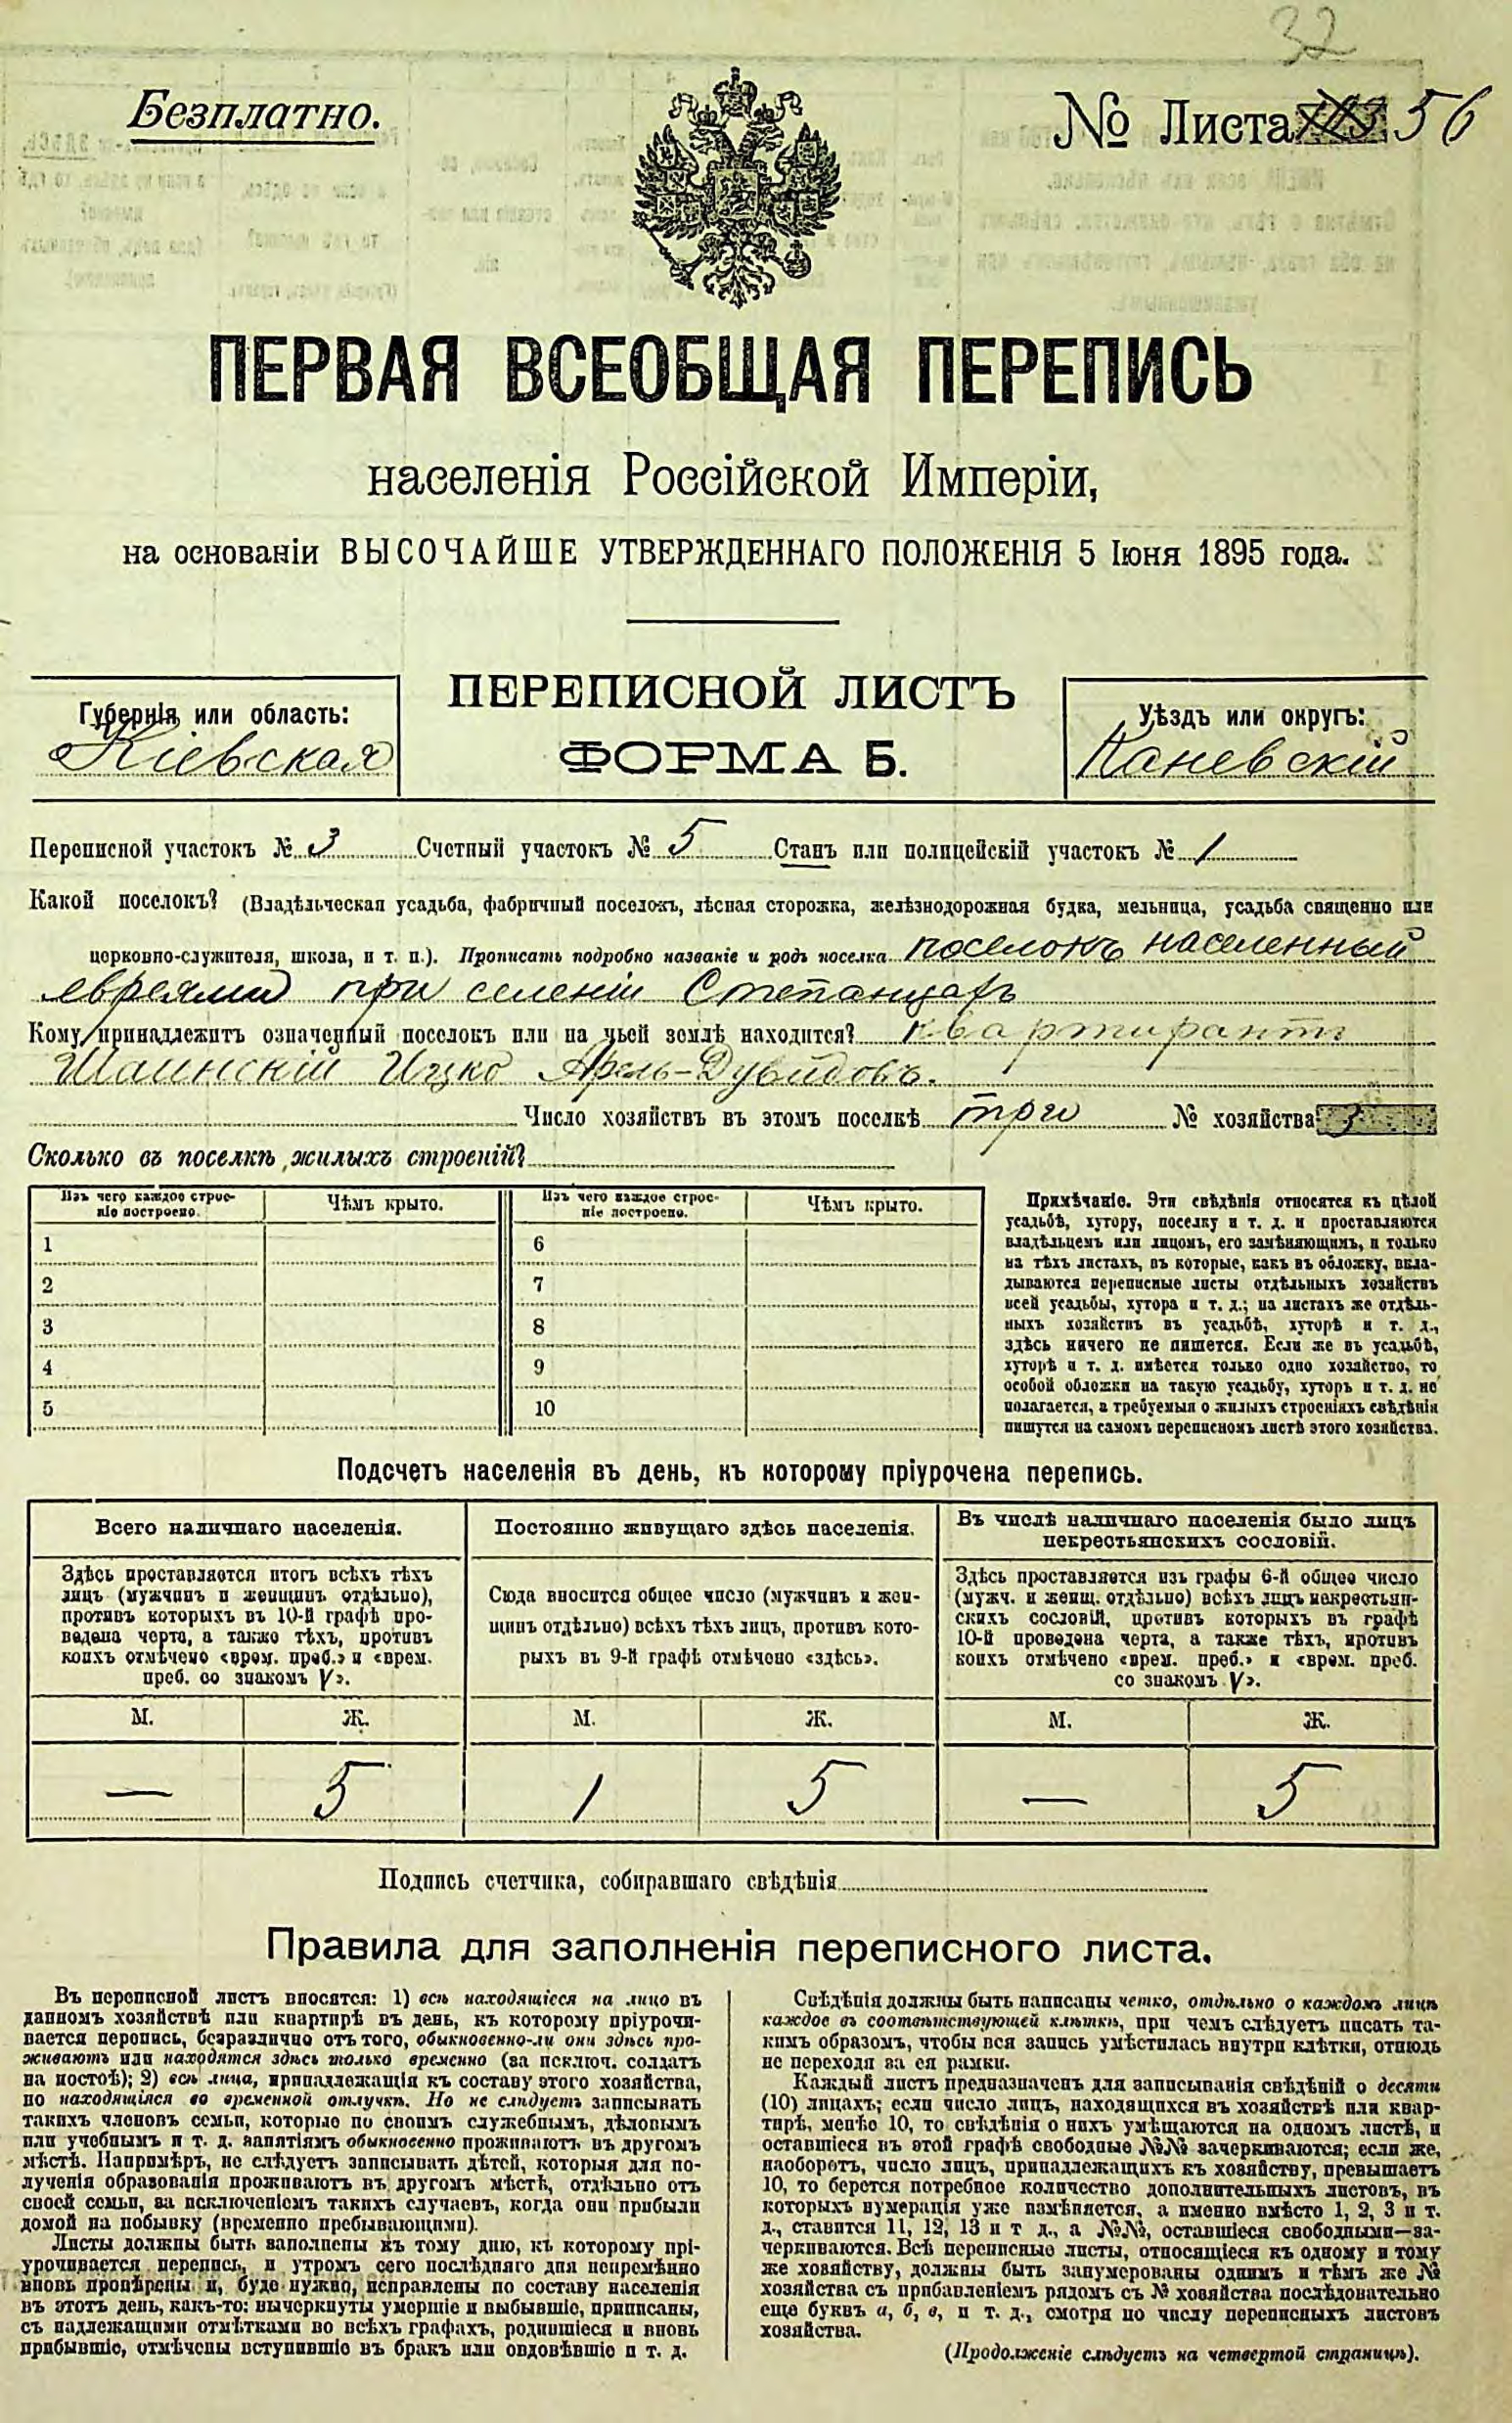 32
Безплатно.
№ Листа 56
ПЕРВАЯ ВСЕОБЩАЯ ПЕРЕПИСЬ
населенія Россійской Имперіи,
на основаніи ВЫСОЧАЙШЕ УТВЕРЖДЕННАГО ПОЛОЖЕНІЯ 5 Іюня 1895 года.
ПЕРЕПИСНОЙ ЛИСТЪ
ФОРМА Б.
Губернія или область:
Кіевская
Уѣздъ или округъ:
Каневскій
Переписной участокъ № 3 Счетный участокъ № 5 Станъ или полицейскій участокъ № 1
Какой поселокъ? (Владѣльческая усадьба, фабричный поселокъ, лѣсная сторожка, желѣзнодорожная будка, мельница, усадьба священно или
церковно-служителя, школа, и т. п.). Прописать подробно названіе и родъ поселка поселокъ населенный
евреями при селеніи Степанцахъ
Кому принадлежитъ означенный поселокъ или на чьей землѣ находится? квартирантъ
Шаинскій Ицко Арель-Дувидовъ.
Число хозяйствъ въ этомъ поселкѣ три № хозяйства 3
Сколько въ поселкѣ жилыхъ строеній?
Изъ чего каждое строе-
ніе построено.
Чѣмъ крыто.
Изъ чего каждое строе-
ніе построено.
Чѣмъ крыто.
1 6
2 7
3 8
4 9
5 10
Примѣчаніе. Эти свѣдѣнія относятся къ цѣлой
усадьбѣ, хутору, поселку и т. д. и проставляются
владѣльцемъ или лицомъ, его замѣняющимъ, и только
на тѣхъ листахъ, въ которые, какъ въ обложку, вкла-
дываются переписные листы отдѣльныхъ хозяйствъ
всей усадьбы, хутора и т. д.; на листахъ же отдѣль-
ныхъ хозяйствъ въ усадьбѣ, хуторѣ и т. д.,
здѣсь ничего не пишется. Если же въ усадьбѣ,
хуторѣ и т. д. имѣется только одно хозяйство, то
особой обложки на такую усадьбу, хуторъ и т. д. не
полагается, а требуемыя о жилыхъ строеніяхъ свѣдѣнія
пишутся на самомъ переписномъ листѣ этого хозяйства.
Подсчетъ населенія въ день, къ которому пріурочена перепись.
Всего наличнаго населенія.
Здѣсь проставляется итогъ всѣхъ тѣхъ
лицъ (мужчинъ и женщинъ отдѣльно),
противъ которыхъ въ 10-й графѣ про-
ведена черта, а также тѣхъ, противъ
коихъ отмѣчено «врем. преб.» и «врем.
преб. со знакомъ V».
М. Ж.
— 5
Постоянно живущаго здѣсь населенія.
Сюда вносится общее число (мужчинъ и жен-
щинъ отдѣльно) всѣхъ тѣхъ лицъ, противъ кото-
рыхъ въ 9-й графѣ отмѣчено «здѣсь».
М. Ж.
1 5
Въ числѣ наличнаго населенія было лицъ
некрестьянскихъ сословій.
Здѣсь проставляется изъ графы 6-й общее число
(мужч. и женщ. отдѣльно) всѣхъ лицъ некрестьян-
скихъ сословій, противъ которыхъ въ графѣ
10-й проведена черта, а также тѣхъ, противъ
коихъ отмѣчено «врем. преб.» и «врем. преб.
со знакомъ V».
М. Ж.
— 5
Подпись счетчика, собиравшаго свѣдѣнія
Правила для заполненія переписного листа.
Въ переписной листъ вносятся: 1) всѣ находящіеся на лицо въ
данномъ хозяйствѣ или квартирѣ въ день, къ которому пріурочи-
вается перепись, безразлично отъ того, обыкновенно-ли они здѣсь про-
живаютъ или находятся здѣсь только временно (за исключ. солдатъ
на постоѣ); 2) всѣ лица, принадлежащія къ составу этого хозяйства,
но находящіяся во временной отлучкѣ. Но не слѣдуетъ записывать
такихъ членовъ семьи, которые по своимъ служебнымъ, дѣловымъ
или учебнымъ и т. д. занятіямъ обыкновенно проживаютъ въ другомъ
мѣстѣ. Напримѣръ, не слѣдуетъ записывать дѣтей, которыя для по-
лученія образованія проживаютъ въ другомъ мѣстѣ, отдѣльно отъ
своей семьи, за исключеніемъ такихъ случаевъ, когда они прибыли
домой на побывку (временно пребывающими).
Листы должны быть заполнены къ тому дню, къ которому прі-
урочивается перепись, и утромъ сего послѣдняго дня непремѣнно
вновь провѣрены и, буде нужно, исправлены по составу населенія
въ этотъ день, какъ-то: вычеркнуты умершіе и выбывшіе, приписаны,
съ надлежащими отмѣтками во всѣхъ графахъ, родившіеся и вновь
прибывшіе, отмѣчены вступившіе въ бракъ или овдовѣвшіе и т. д.
Свѣдѣнія должны быть написаны четко, отдѣльно о каждомъ лицѣ
каждое въ соотвѣтствующей клѣткѣ, при чемъ слѣдуетъ писать та-
кимъ образомъ, чтобы вся запись умѣстилась внутри клѣтки, отнюдь
не переходя за ея рамки.
Каждый листъ предназначенъ для записыванія свѣдѣній о десяти
(10) лицахъ; если число лицъ, находящихся въ хозяйствѣ или квар-
тирѣ, менѣе 10, то свѣдѣнія о нихъ умѣщаются на одномъ листѣ, и
оставшіеся въ этой графѣ свободные №№ зачеркиваются; если же,
наоборотъ, число лицъ, принадлежащихъ къ хозяйству, превышаетъ
10, то берется потребное количество дополнительныхъ листовъ, въ
которыхъ нумерація уже измѣняется, а именно вмѣсто 1, 2, 3 и т.
д., ставится 11, 12, 13 и т д., а №№, оставшіеся свободными—за-
черкиваются. Всѣ переписные листы, относящіеся къ одному и тому
же хозяйству, должны быть занумерованы однимъ и тѣмъ же №
хозяйства съ прибавленіемъ рядомъ съ № хозяйства послѣдовательно
еще буквъ а, б, в, и т. д., смотря по числу переписныхъ листовъ
хозяйства.
(Продолженіе слѣдуетъ на четвертой страницѣ).